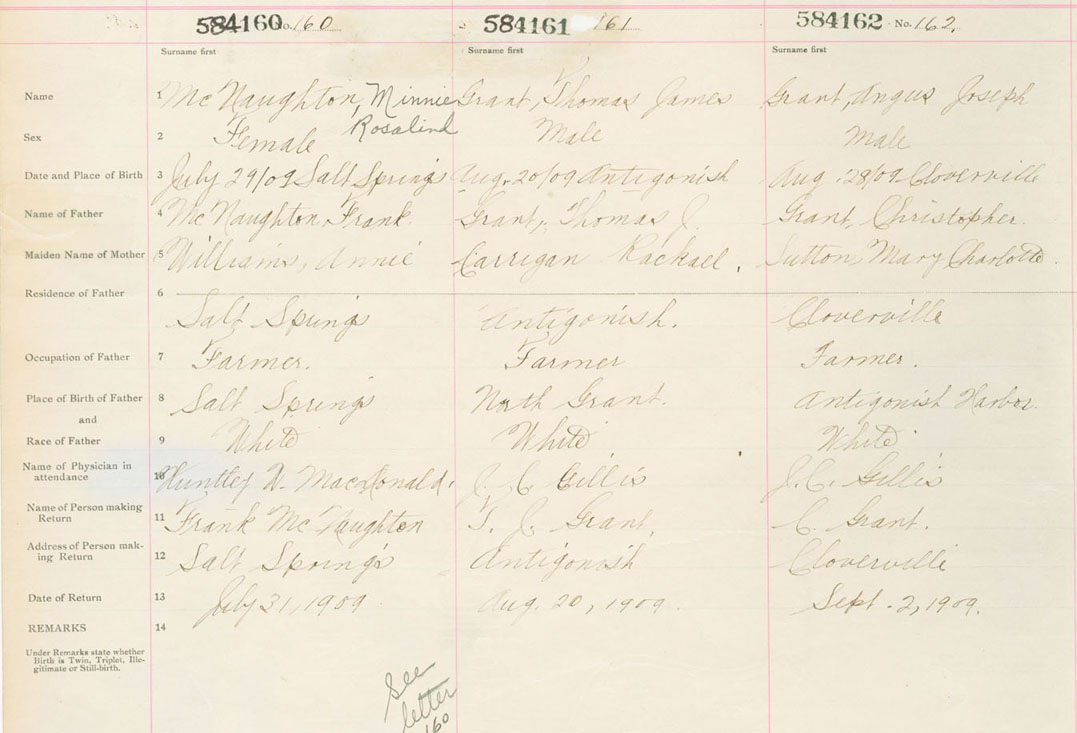 584160 No. 160 584161 161 584162 No. 162.
Surname first Surname first Surname first
Name 1 Mc Naughton, Minnie Grant, Thomas James Grant, Angus Joseph
Rosalind
Sex 2 Female Male Male
Date and Place of Birth 3 July 29/09 Salt Springs Aug. 20/09 Antigonish Aug. 28/09 Cloverville
Name of Father 4 Mc Naughton, Frank. Grant, Thomas J. Grant, Christopher.
Maiden Name of Mother 5 Williams, Annie Carrigan Rachael. Sutton, Mary Charlotte.
Residence of Father 6
Salt Springs Antigonish. Cloverville
Occupation of Father 7 Farmer. Farmer Farmer.
Place of Birth of Father 8 Salt Springs North Grant. Antigonish Harbor.
and
Race of Father 9 White White White
Name of Physician in
attendance 10 Huntley W. MacDonald. J. C. Gillis J. C. Gillis
Name of Person making
Return 11 Frank Mc Naughton T. J. Grant, C. Grant.
Address of Person mak-
ing Return 12 Salt Springs Antigonish Cloverville
Date of Return 13 July 31, 1909 Aug. 20, 1909. Sept. 2, 1909.
REMARKS 14
Under Remarks state whether
Birth is Twin, Triplet, Ille-
gitimate or Still-birth.
See
letter
160